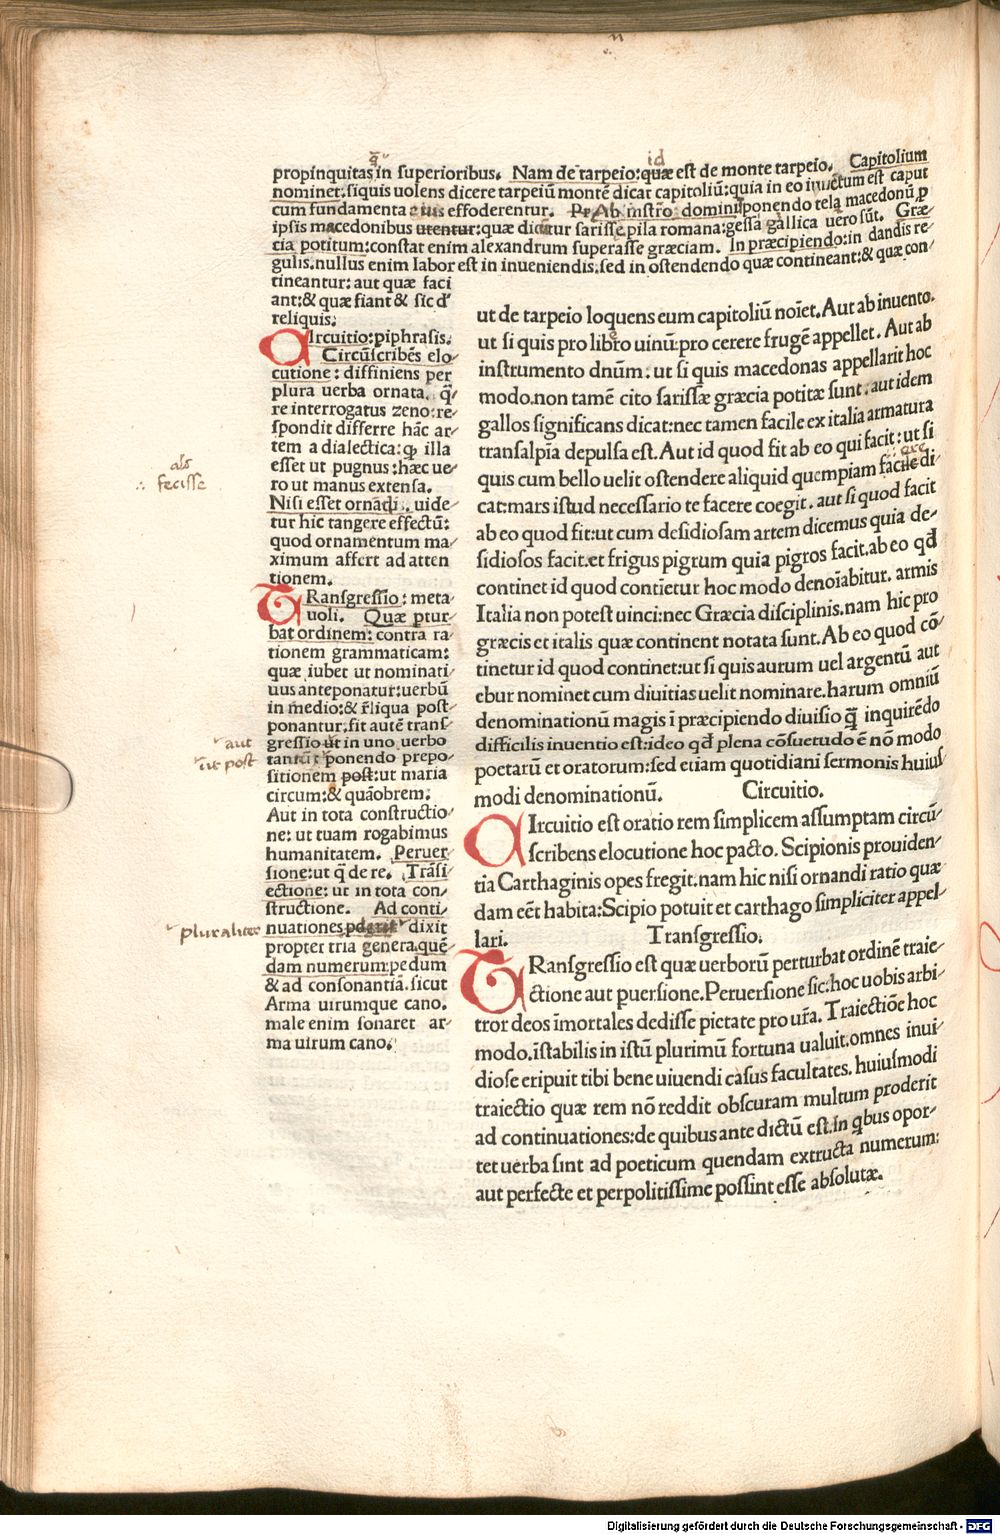 propinquitas in superioribus. Nam de tarpeio: quæ est de monte tarpeio. Capitolium
nominet. siquis uolens dicere tarpeiū montē dicat capitoliū: quia in eo inuectum est caput
cum fundamenta eius effoderentur. Ab instr̄o dominū ponendo tela macedonū p
ipsis macedonibus utentur: quæ dicūtur sarisse pila romana: gessa gallica uero sūt. Græ
cia potitum: constat enim alexandrum superasse græciam. In præcipiendo: in dandis re
gulis. nullus enim labor est in inueniendis. sed in ostendendo quæ contineant: & quæ con/
tineantur: aut quæ faci
ant: & quæ fiant & sic d'
reliquis.
CIrcuitio: piphrasis.
Circūscribēs elo/
cutione: diffiniens per
plura uerba ornata. q̄/
re interrogatus zeno: re/
spondit differre hāc ar/
tem a dialectica: ꝙ illa
esset ut pugnus: hæc ue/
ro ut manus extensa.
Nisi esset ornādi. uide/
tur hic tangere effectū:
quod ornamentum ma/
ximum affert ad atten
tionem.
TRansgressio: meta/
uoli. Quæ ptur/
bat ordinem: contra ra/
tionem grammaticam:
quæ iubet ut nominati/
uus anteponatur: uerbū
in medio: & r̄liqua post/
ponantur. fit autē trans/
gressio ut in uno uerbo
tantū: ponendo prepo/
sitionem post: ut maria
circum: & quāobrem.
Aut in tota constructio/
ne: ut tuam rogabimus
humanitatem. Peruer/
sione: ut q̄ de re. Trāsi/
ectione: ut in tota con/
structione. Ad conti/
nuationes dixit
propter tria genera. quē/
dam numerum: pedum
& ad consonantiā. sicut
Arma uirumque cano.
male enim sonaret ar/
ma uirum cano.
q̄
id
als
fecisse
aut
ut post
pluraliter
ut de tarpeio loquens eum capitoliū noīet. Aut ab inuento.
ut si quis pro libro uinū: pro cerere frugē appellet. Aut ab
instrumento dnūm: ut si quis macedonas appellarit hoc
modo. non tamē cito sarissæ græcia potitæ sunt. aut idem
gallos significans dicat: nec tamen facile ex italia armatura
transalpīa depulsa est. Aut id quod fit ab eo qui facit: ut si
quis cum bello uelit ostendere aliquid quempiam facile di/
cat: mars istud necessario te facere coegit. aut si quod facit
ab eo quod fit: ut cum desidiosam artem dicemus quia de/
sidiosos facit. et frigus pigrum quia pigros facit. ab eo qđ
continet id quod contīetur hoc modo denoīabitur. armis
Italia non potest uinci: nec Græcia disciplinis. nam hic pro
græcis et italis quæ continent notata sunt. Ab eo quod cō/
tinetur id quod continet: ut si quis aurum uel argentū aut
ebur nominet cum diuitias uelit nominare. harum omniū
denominationū magis ī præcipiendo diuisio q̄ inquirēdo
difficilis inuentio est: ideo qđ plena cōsuetudo ē nō modo
poetarū et oratorum: sed etiam quotidiani sermonis huius
modi denominationū. Circuitio.
CIrcuitio est oratio rem simplicem assumptam circū/
scribens elocutione hoc pacto. Scipionis prouiden/
tia Carthaginis opes fregit. nam hic nisi ornandi ratio quæ
dam eēt habita: Scipio potuit et carthago simpliciter appel/
lari. Transgressio.
TRansgressio est quæ uerborū perturbat ordinē traie/
ctione aut puersione. Peruersione sic: hoc uobis arbi/
tror deos īmortales dedisse pietate pro ur̄a. Traiectiōe hoc
modo. īstabilis in istū plurimū fortuna ualuit. omnes inui/
diose eripuit tibi bene uiuendi casus facultates. huiusmodi
traiectio quæ rem nō reddit obscuram multum proderit
ad continuationes: de quibus ante dictū est. In qbus opor/
tet uerba sint ad poeticum quendam extructa numerum:
aut perfecte et perpolitissime possint esse absolutæ.
Digitalisierung gefördert durch die Deutsche Forschungsgemeinschaft - DFG